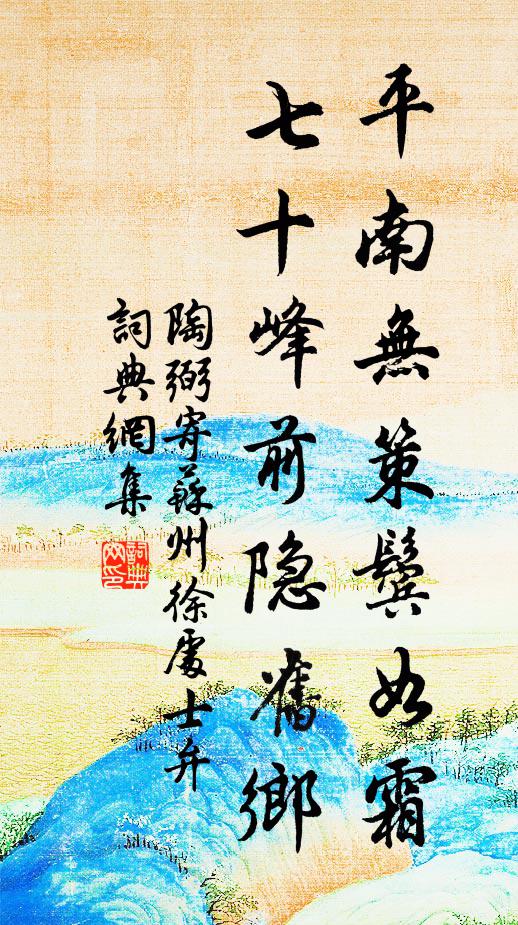 平南無策鬓如霜
七十峰前隐舊鄉
陶弼寄蘇州徐處士弁
詞典網集
詞典網印